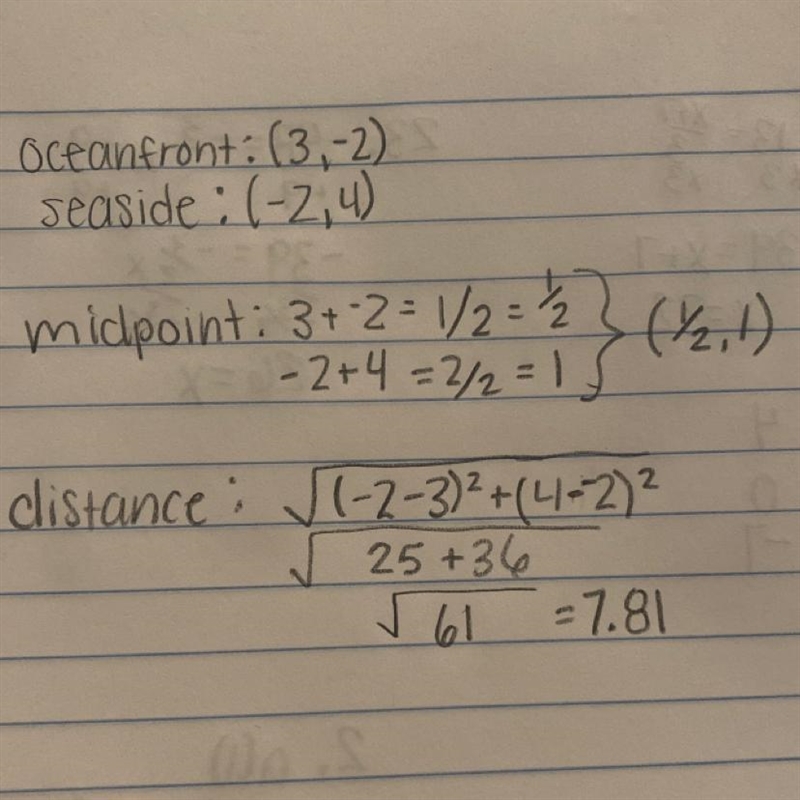 oceanfront: (3,-2)
seaside: (-2,4)
midpoint: 3+-2 = 1/2 = 1/2 } (1/2, 1)
-2+4 = 2/2 = 1
distance: √(-2-3)²+(4--2)²
√25+36
√61 = 7.81